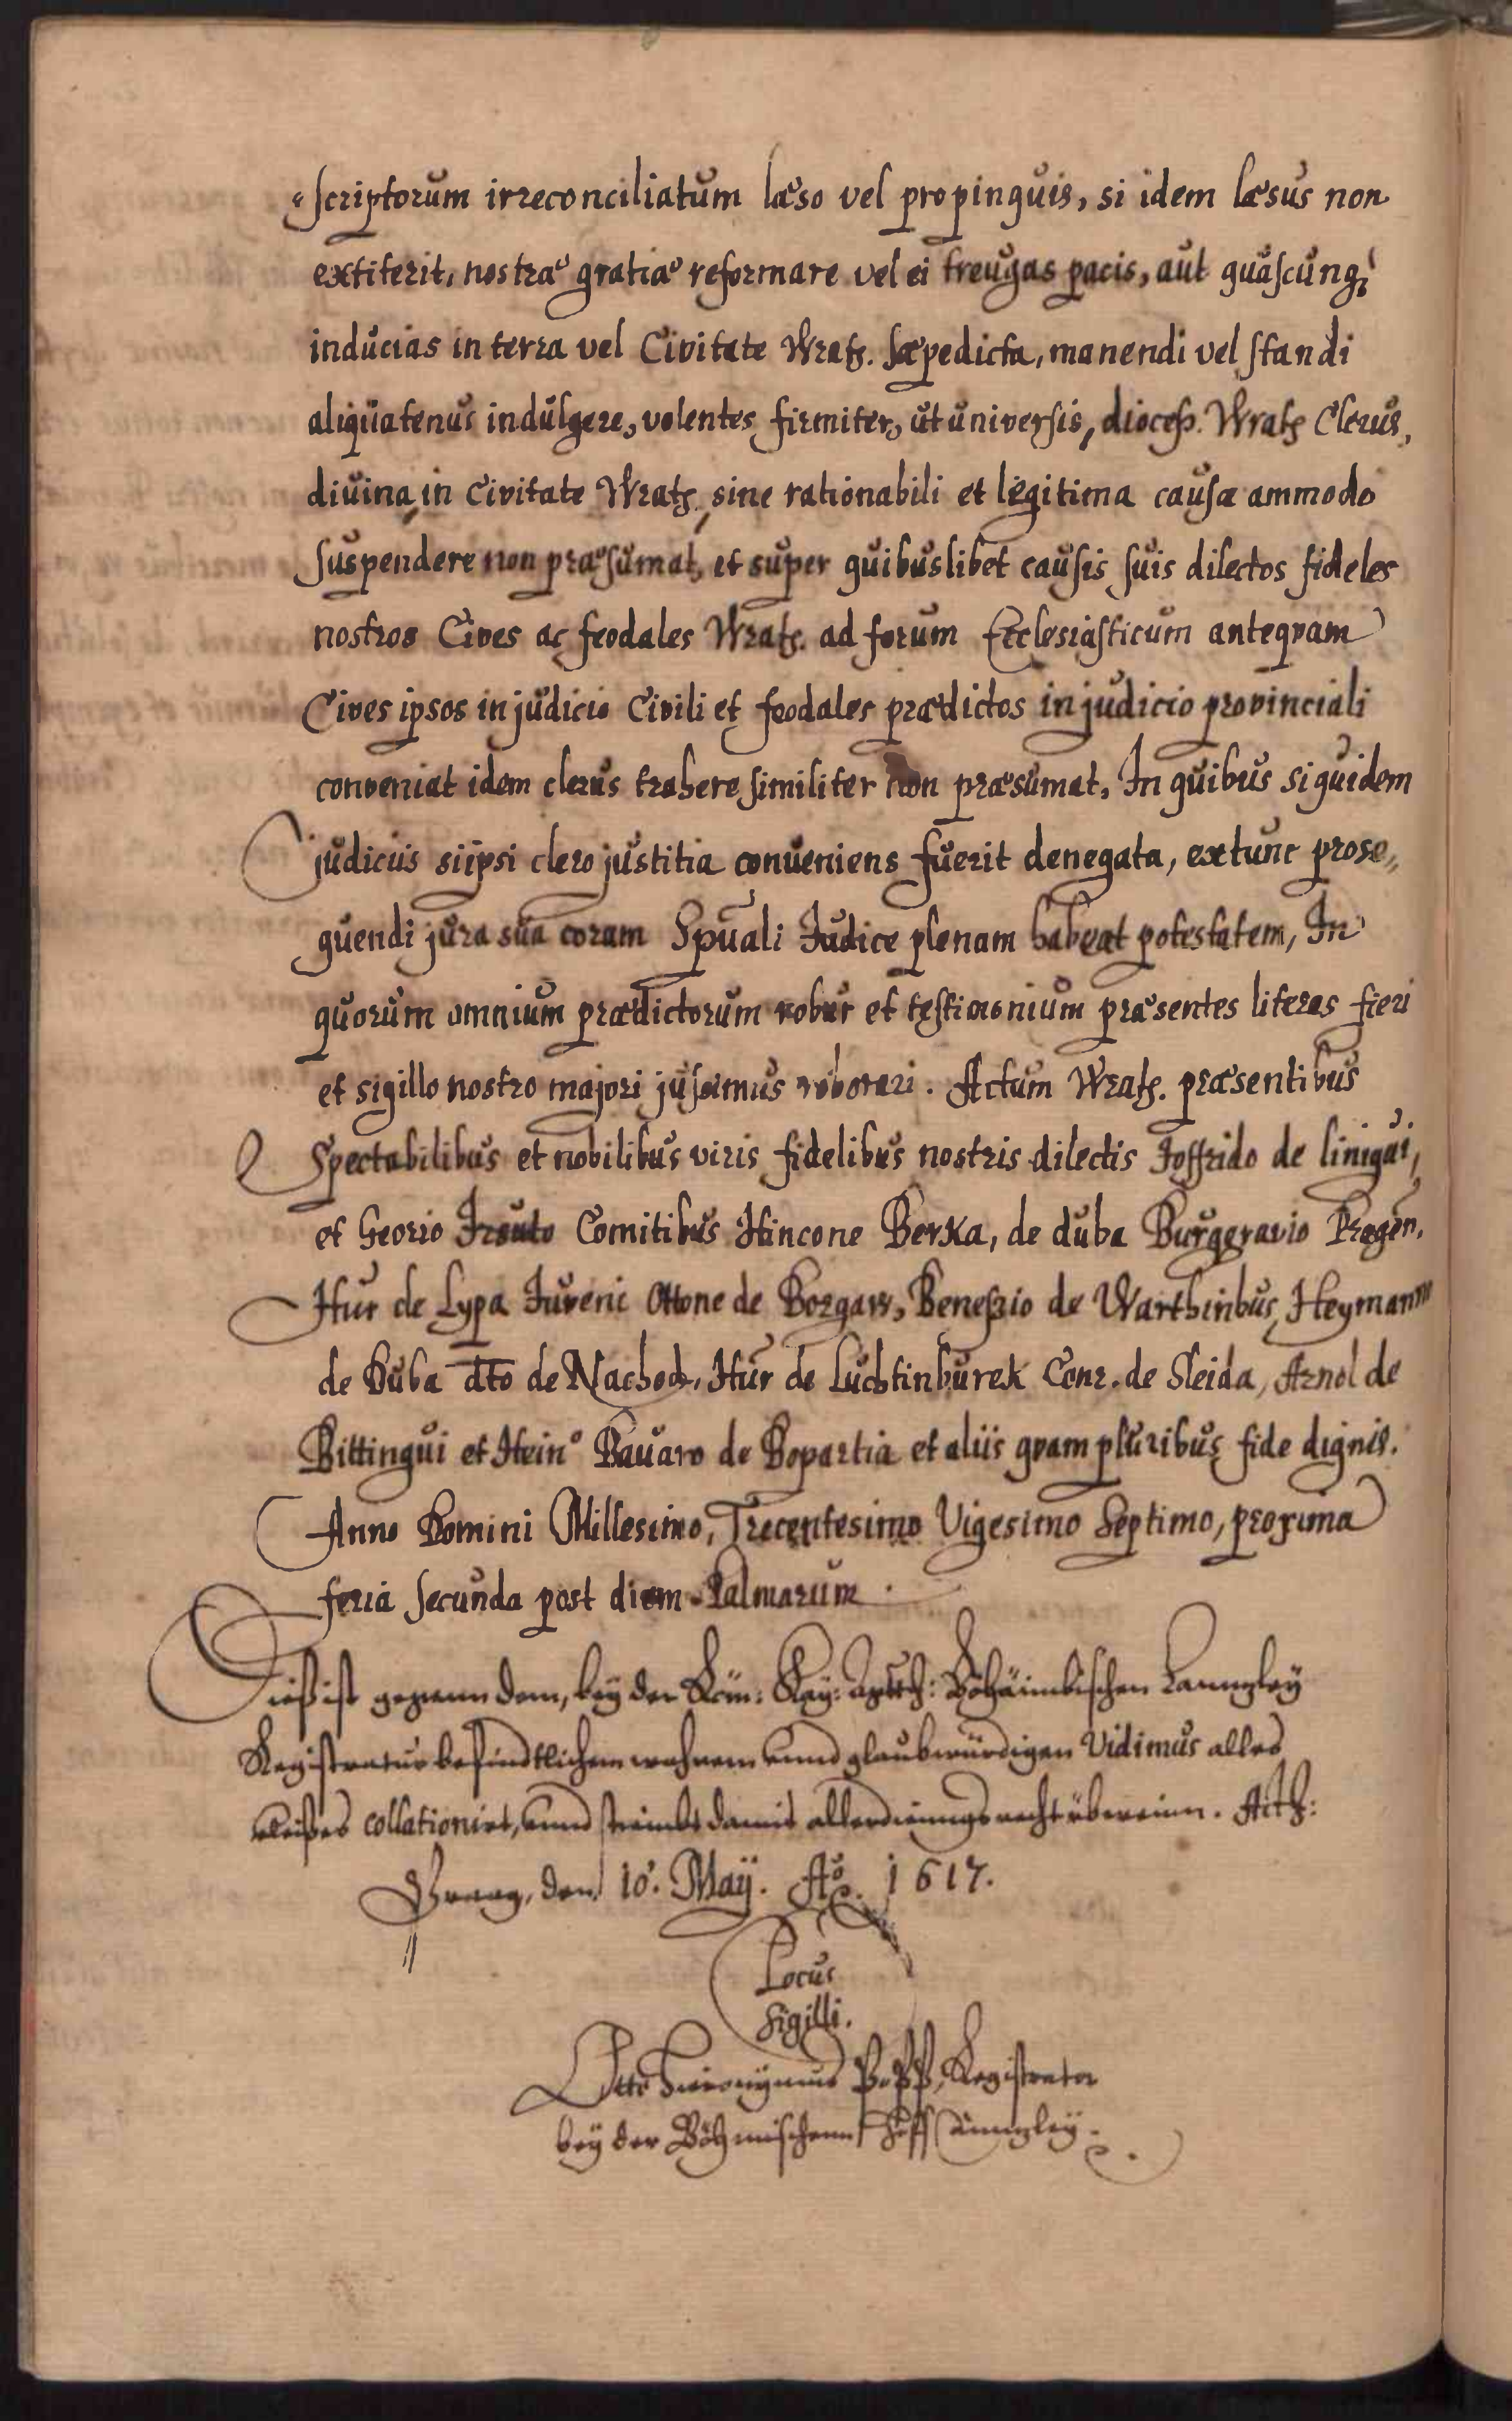 scriptorum irreconciliatum læso vel propinquis, si idem læsus non
extiterit, nostræ gratiæ reformare vel ei treugas pacis, aut quascunq;
inducias in terra vel Civitate Wratß. sæpedicta, manendi vel standi
aliquatenus indulgere, volentes firmiter, ut universis, diocesß. Wratß Clerus,
divina in Civitate Wratß, sine rationabili et legitima causa ammodo
suspendere non præsumat, et super quibuslibet causis suis dilectos fideles
nostros Cives ac feodales Wratß. ad forum Ecclesiasticum anteqvam
Cives ipsos in judicio Civili et feodales prædictos in judicio provinciali
conveniat idem clerus trahere similiter non præsumat, In quibus siquidem
judiciis si ipsi clero justitia conveniens fuerit denegata, extunc prose,,
quendi jura sua coram Spuali Judice plenam habeat potestatem, In
quorum omnium prædictorum robur et testimonium præsentes literas fieri
et sigillo nostro majori jussimus roborari. Actum Wratß. præsentibus
Spectabilibus et nobilibus viris fidelibus nostris dilectis Joffrido de linigui,
et Georio Irsuto Comitibus Hincone Berka, de duba Burggravio Pragen.
Hur de Lypa Juveni Ottone de Borgaw, Beneßio de Warthinbus, Heymann
de Duba dto de Nachod, Hur de Luchtinburek Conr. de Sleida, Arnol de
Bittingui et Hein° Bauaro de Bopartia et aliis qvam pluribus fide dignis.
Anno Domini Millesimo, Trecentesimo Vigesimo Septimo, proxima
feria secunda post diem Palmarum.
Dieß ist gegenn dem, bey der Röm: Kay: Maytt: Böhäimbischen Canngley
Registratur befindtlichem wahrem vnnd glaubwürdigen Vidimus alles
vleißes collationirt, vnnd stimbt damit allerdinngs recht überein. Actß:
Praag, den 10. Maÿ. Aō. 1617.
Locus
Sigilli.
Otto Hieronÿmus Popp, Registrator
bey der Böhmischenn Hoff Canngley.